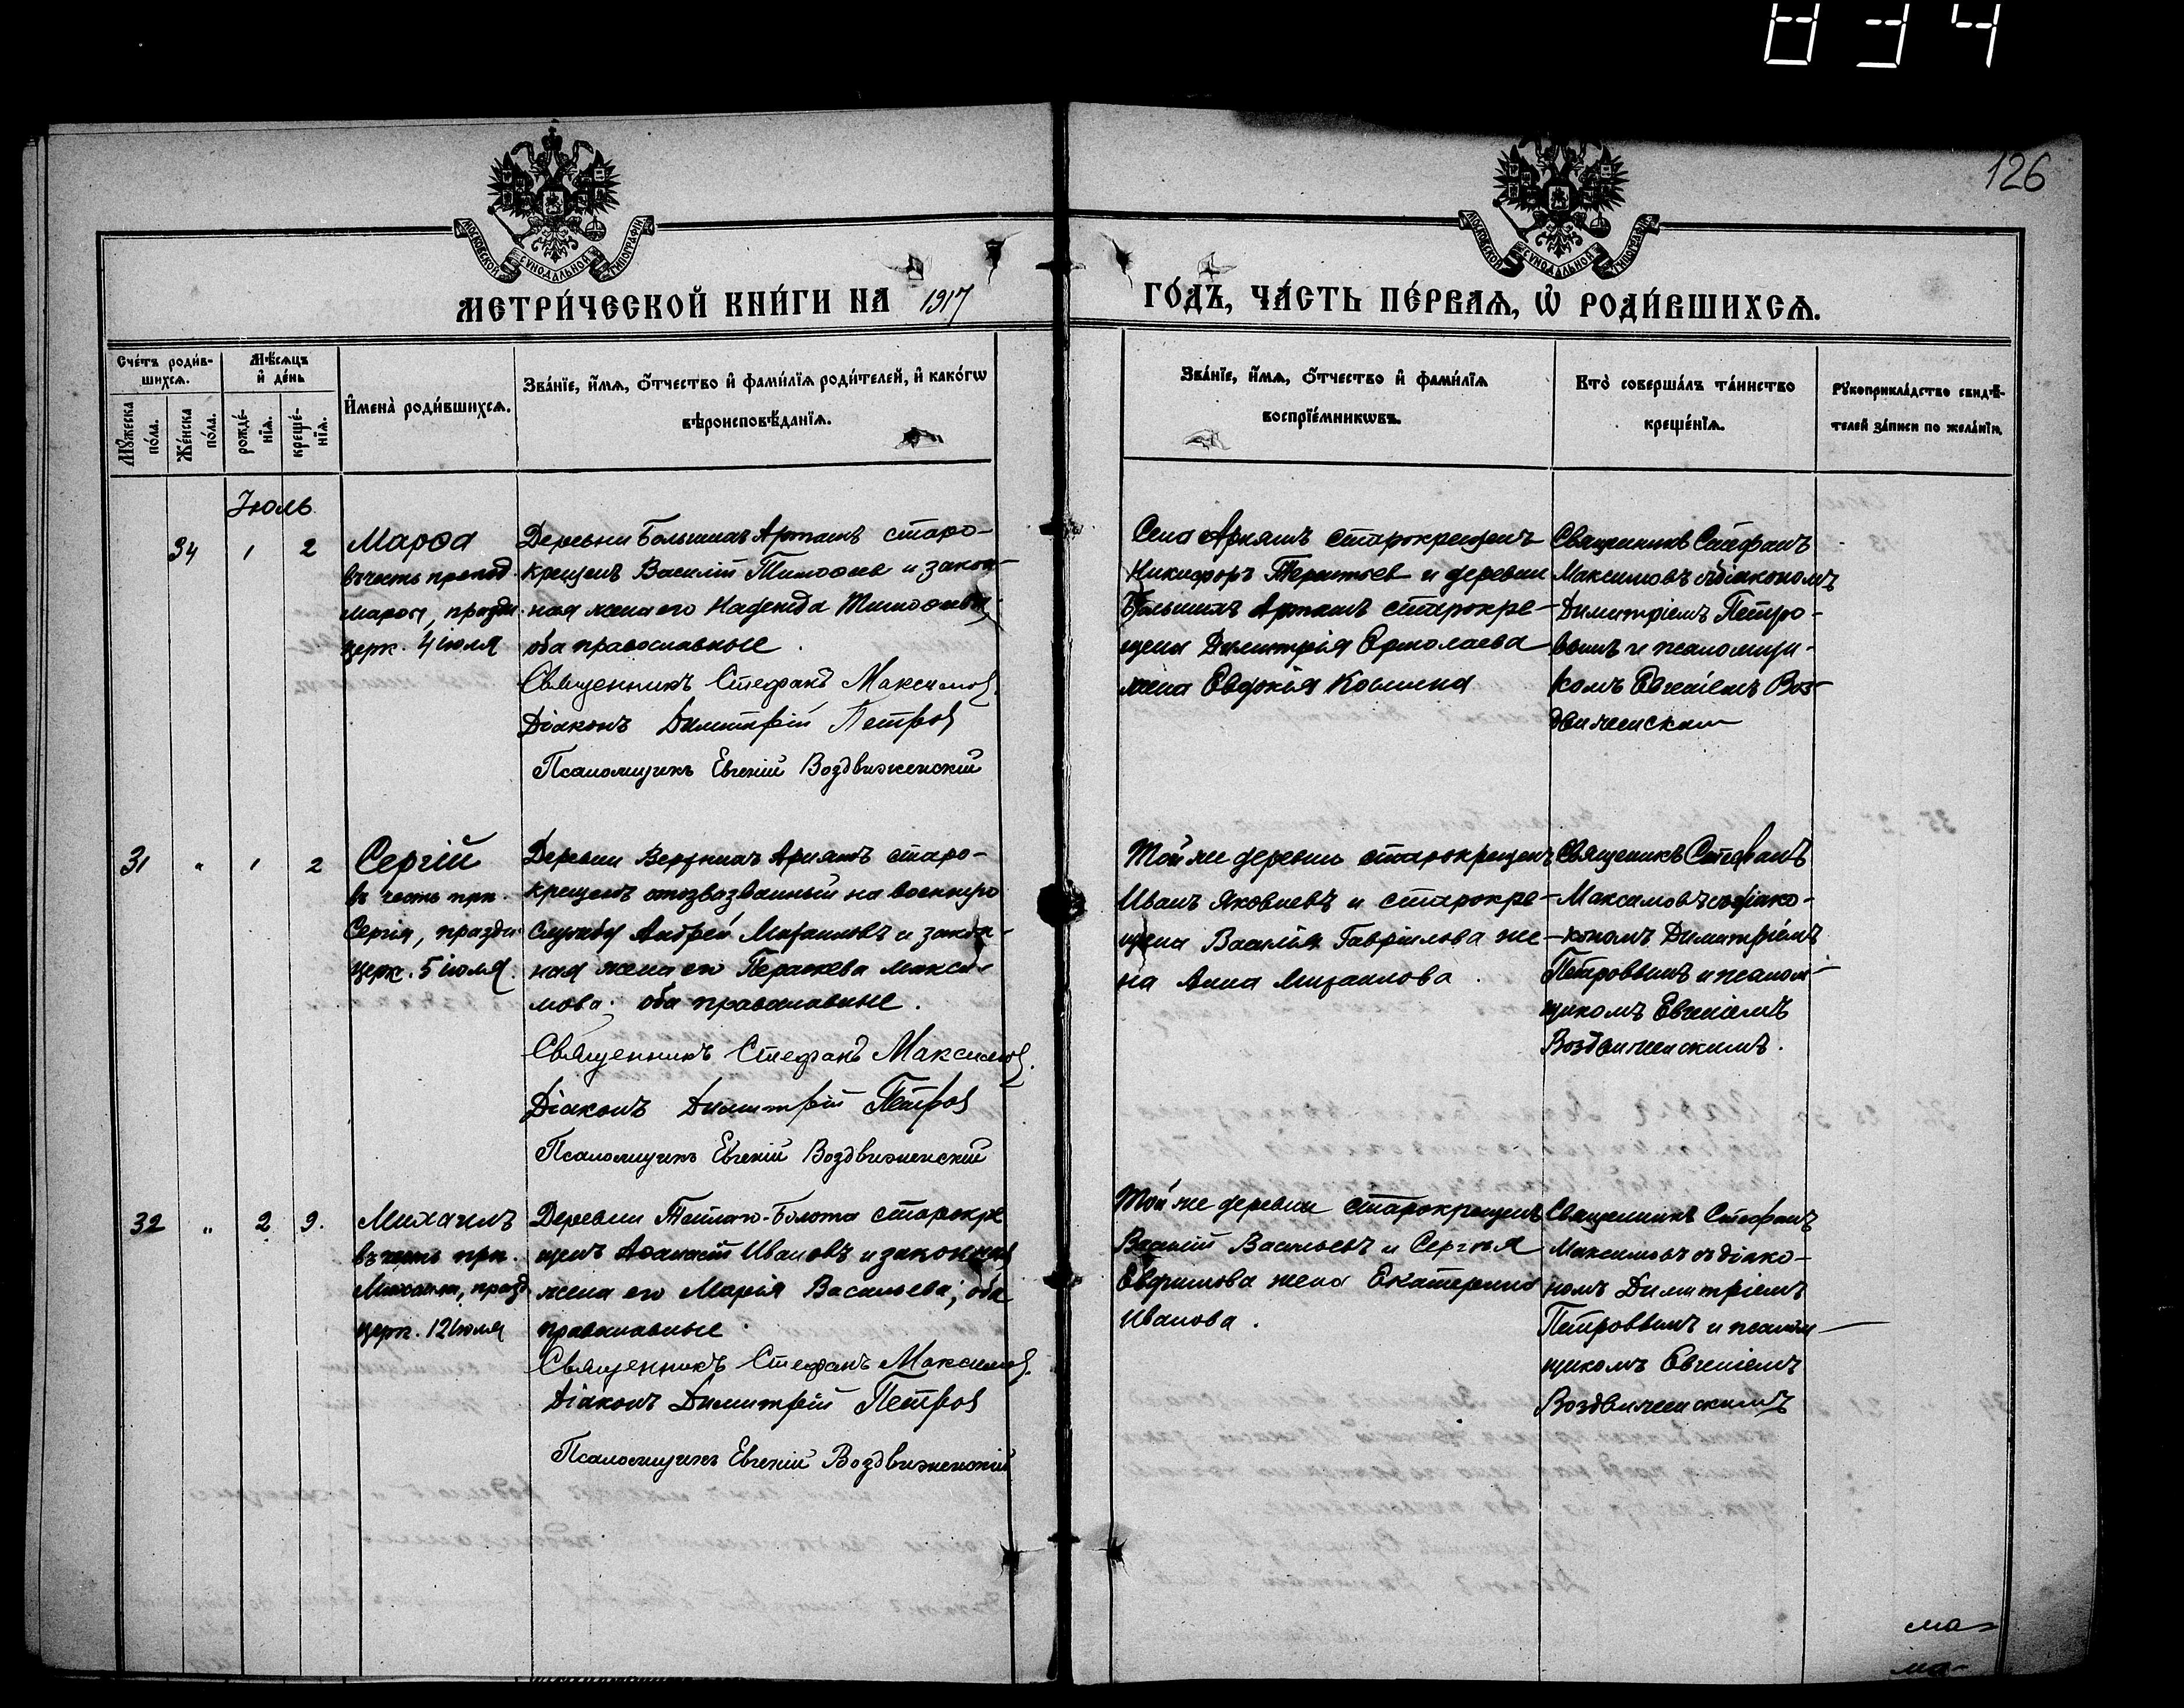 834
126
МОСКОВСКОЙ СѴНОДАЛЬНОЙ ТИПОГРАФІИ
МОСКОВСКОЙ СѴНОДАЛЬНОЙ ТИПОГРАФІИ
МЕТРИ́ЧЕСКОЙ КНИ́ГИ НА 1917 ГО́ДЪ, ЧА́СТЬ ПЕ́РВАѦ, Ѡ҆ РОДИ́ВШИХСѦ.
Сче́тъ роди́в-
шихсѧ.
Мѣ́сѧцъ
и҆ де́нь
Мꙋ́жеска
по́ла.
Же́нска
по́ла.
рожде́-
нїѧ.
креще́-
нїѧ.
И҆мена̀ роди́вшихсѧ.
Зва́нїе, и҆́мѧ, ѻ҆́тчество и҆ фами́лїѧ роди́телей, и҆ како́гѡ
вѣроисповѣ́данїѧ.
Зва́нїе, и҆́мѧ, ѻ҆́тчество и҆ фами́лїѧ
воспрїе́мникѡвъ.
Кто̀ соверша́лъ та́инство
креще́нїѧ.
Рꙋкоприкла́дство свидѣ́-
телей за́писи по жела́нїю.
Іюль
34 1 2
Марѳа
въ честь препод.
Марѳы, праздн.
церк. 4 іюля
Деревни Большихъ Арташъ старо-
крещенъ Василій Тимоѳеев и закон-
ная жена его Надежда Тимоѳеева
оба православные.
Священникъ Стефанъ Максимов.
Діаконъ Димитрій Петров
Псаломщикъ Евгеній Воздвиженскій
Села Арняшъ старокрещенъ
Никифоръ Терентьев и деревни
Большихъ Арташъ старокре-
щена Димитрія Ермолаева
жена Евдокія Косьмина
Священникъ Стефанъ
Максимовъ съ діакономъ
Димитріемъ Петро-
вымъ и псаломщи-
комъ Евгеніемъ Воз-
движенским
31 " 1 2
Сергій
въ честь прп.
Сергія, праздн.
церк. 5 іюля.
Деревни Верхнихъ Арняшъ старо-
крещенъ на военную
службу Андрей Михаиловъ и закон-
ная жена его Параскева Макси-
мова; оба православные.
Священникъ Стефанъ Максимов.
Діаконъ Димитрій Петров
Псаломщикъ Евгеній Воздвиженскій
Той же деревни старокрещенъ
Иванъ Яковлевъ и старокре-
щена Василія Гаврилова же-
на Анна Михаилова.
Священникъ Стефанъ
Максимовъ съ діако-
кономъ Димитріемъ
Петровымъ и псалом-
щикомъ Евгеніемъ
Воздвиженскимъ.
32 " 2 9.
Михаилъ
въ честь прп.
Михаила, празд.
церк. 12 іюля
Деревни Болота старокре
щенъ Аѳанасій Ивановъ и законная
жена его Марія Васильева; оба
православные.
Священникъ Стефанъ Максимов.
Діаконъ Димитрій Петров
Псаломщикъ Евгеній Воздвиженскій
Той же деревни старокрещенъ
Василій Васильевъ и Сергія
Евфимова жена Екатерина
Иванова.
Священникъ Стефанъ
Максимовъ съ діако-
номъ Димитріемъ
Петровымъ и псалом-
щикомъ Евгеніемъ
Воздвиженскимъ
ма-
ма-